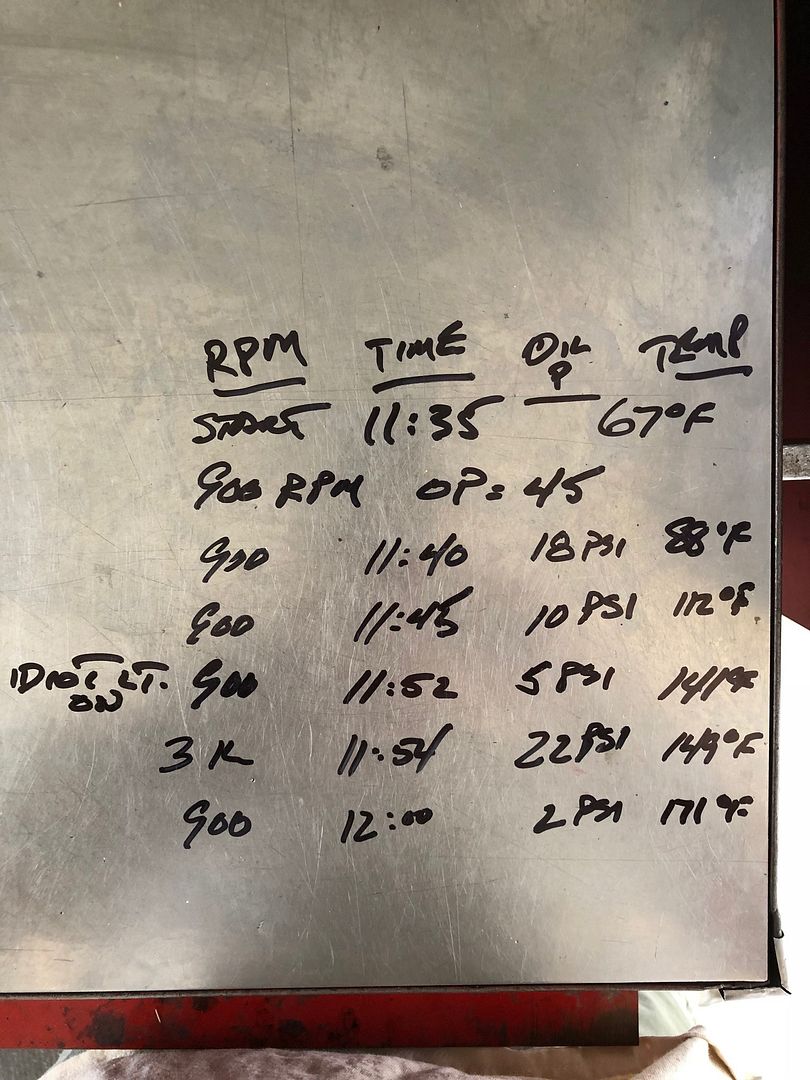 RPM TIME OIL P TEMP
START 11:35 67°F
900 RPM OP= 45
900 11:40 18 PSI 88°F
900 11:45 10 PSI 112°F
IDIOT LT. ON 900 11:52 5 PSI 141°F
3K 11:54 22 PSI 149°F
900 12:00 2 PSI 171°F